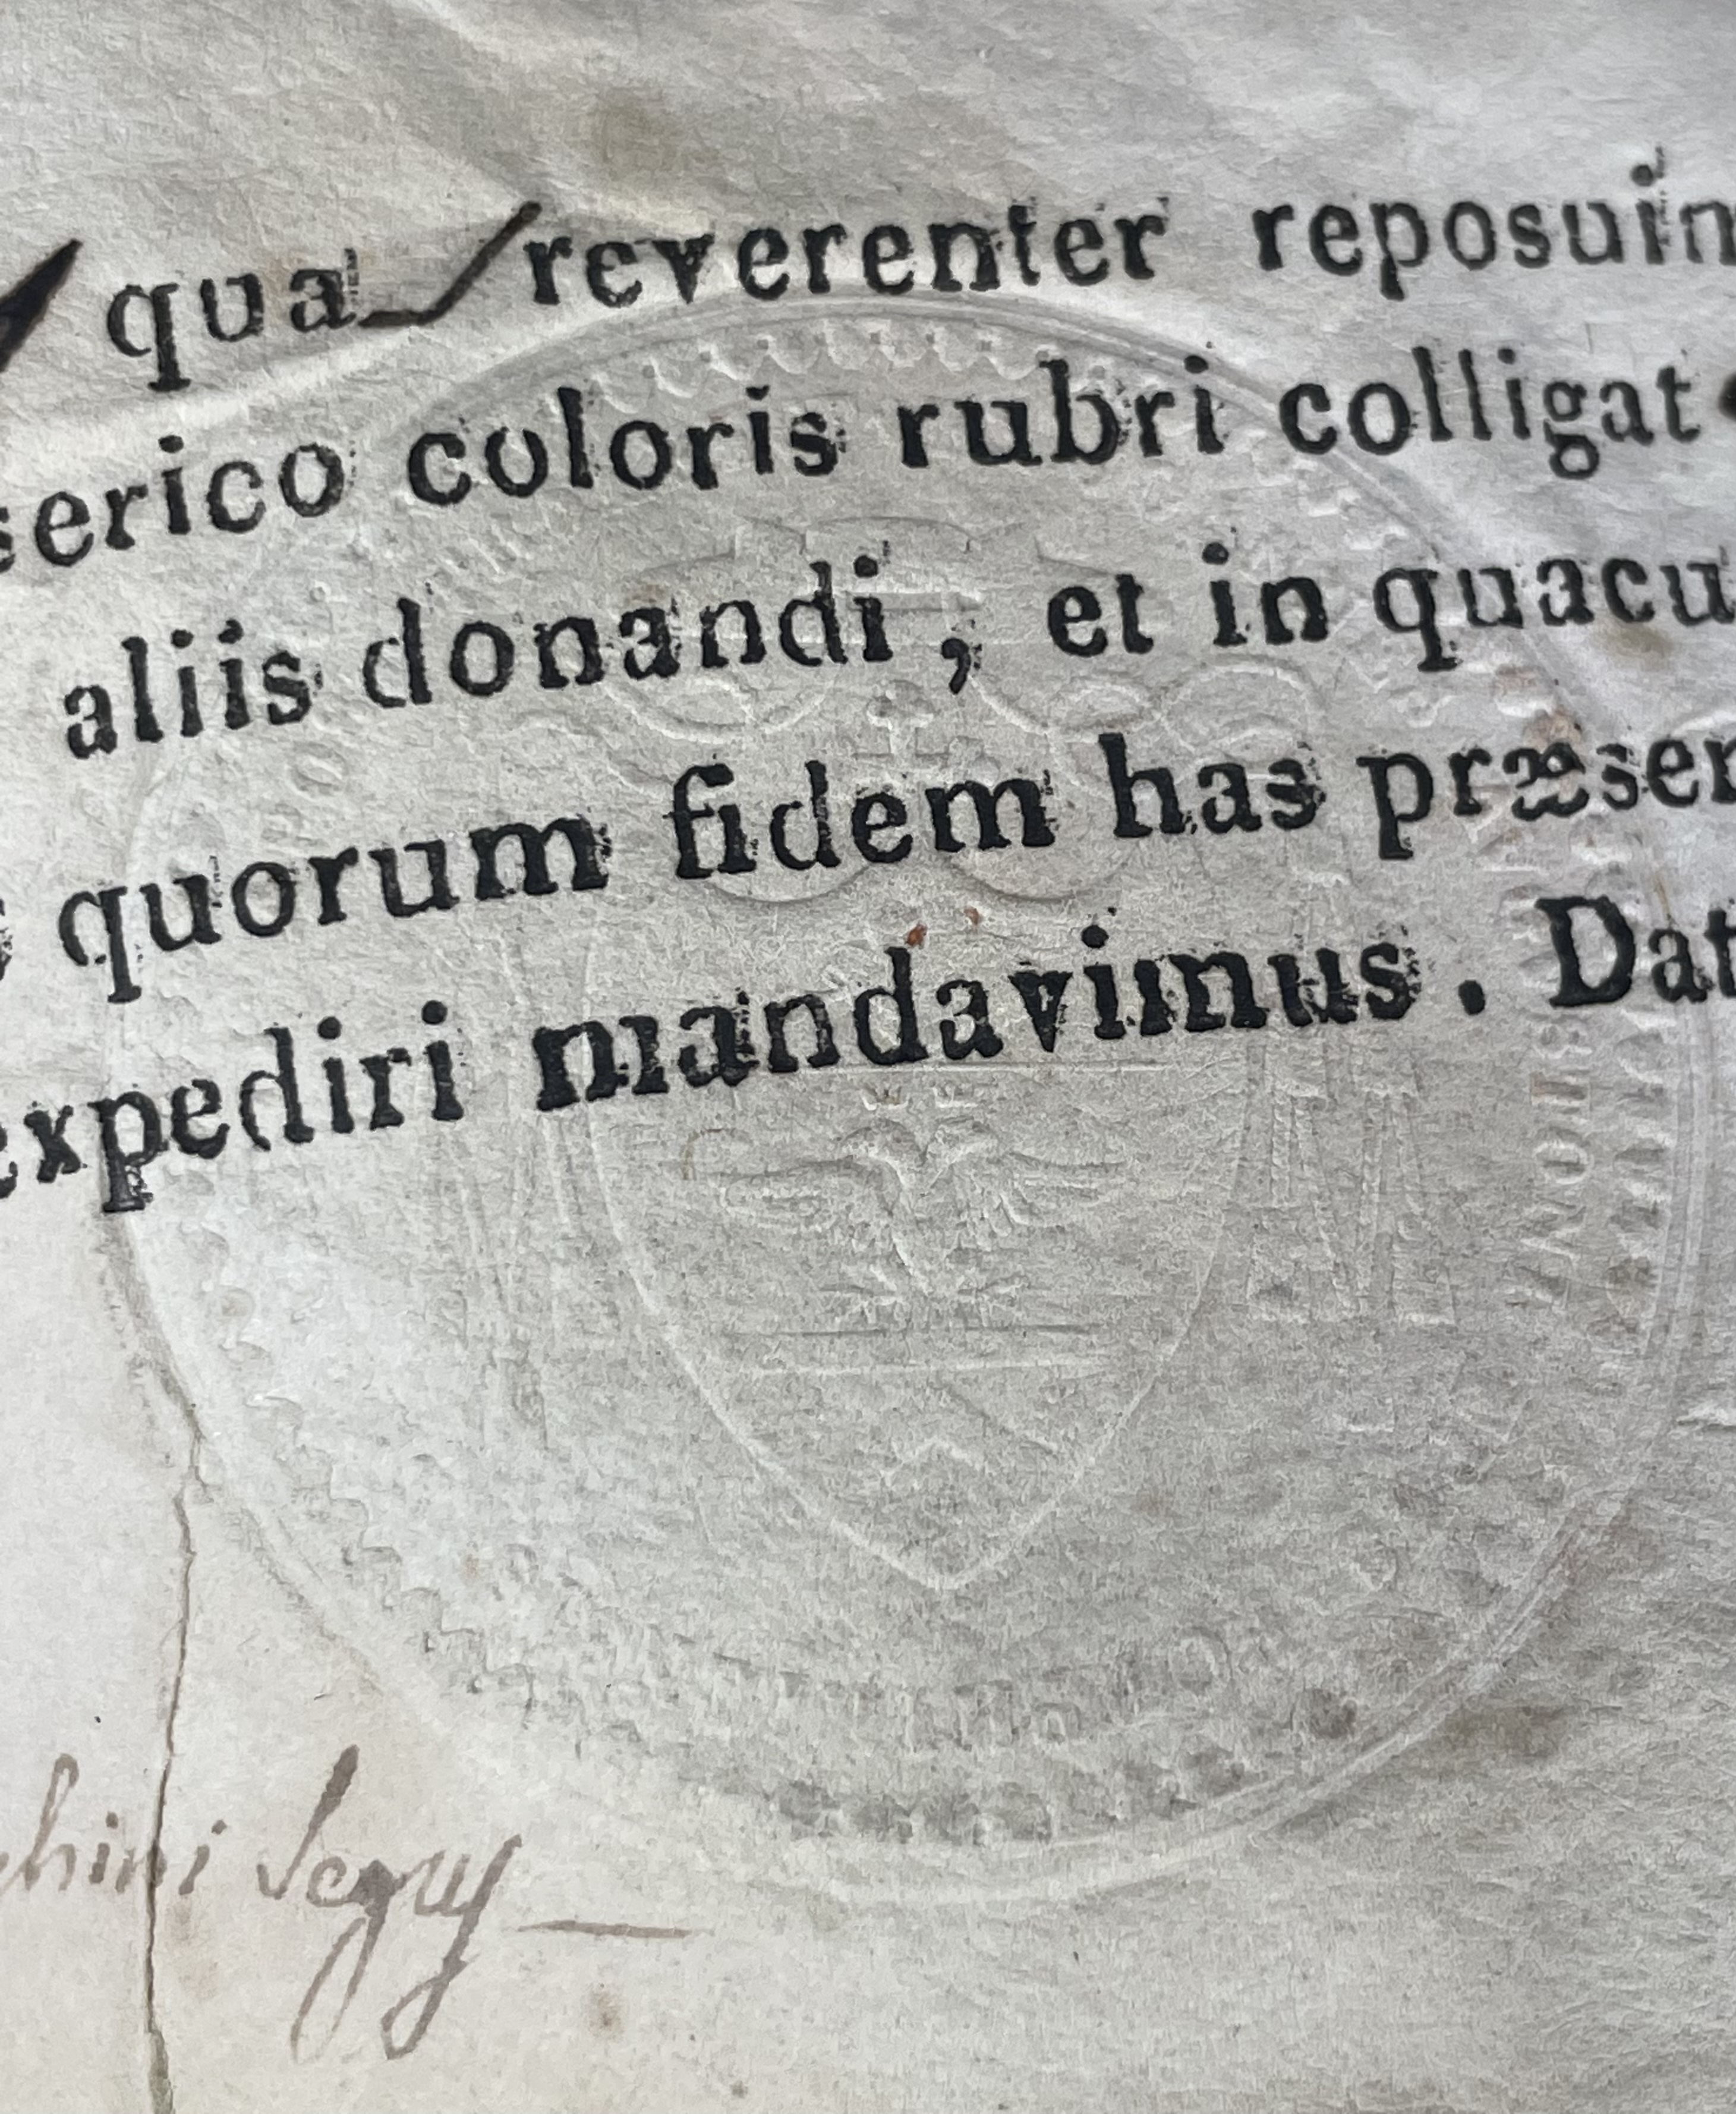 qua reverenter reposuim
serico coloris rubri colligat
aliis donandi, et in quacu
quorum fidem has præsen
expediri mandavimus. Dat